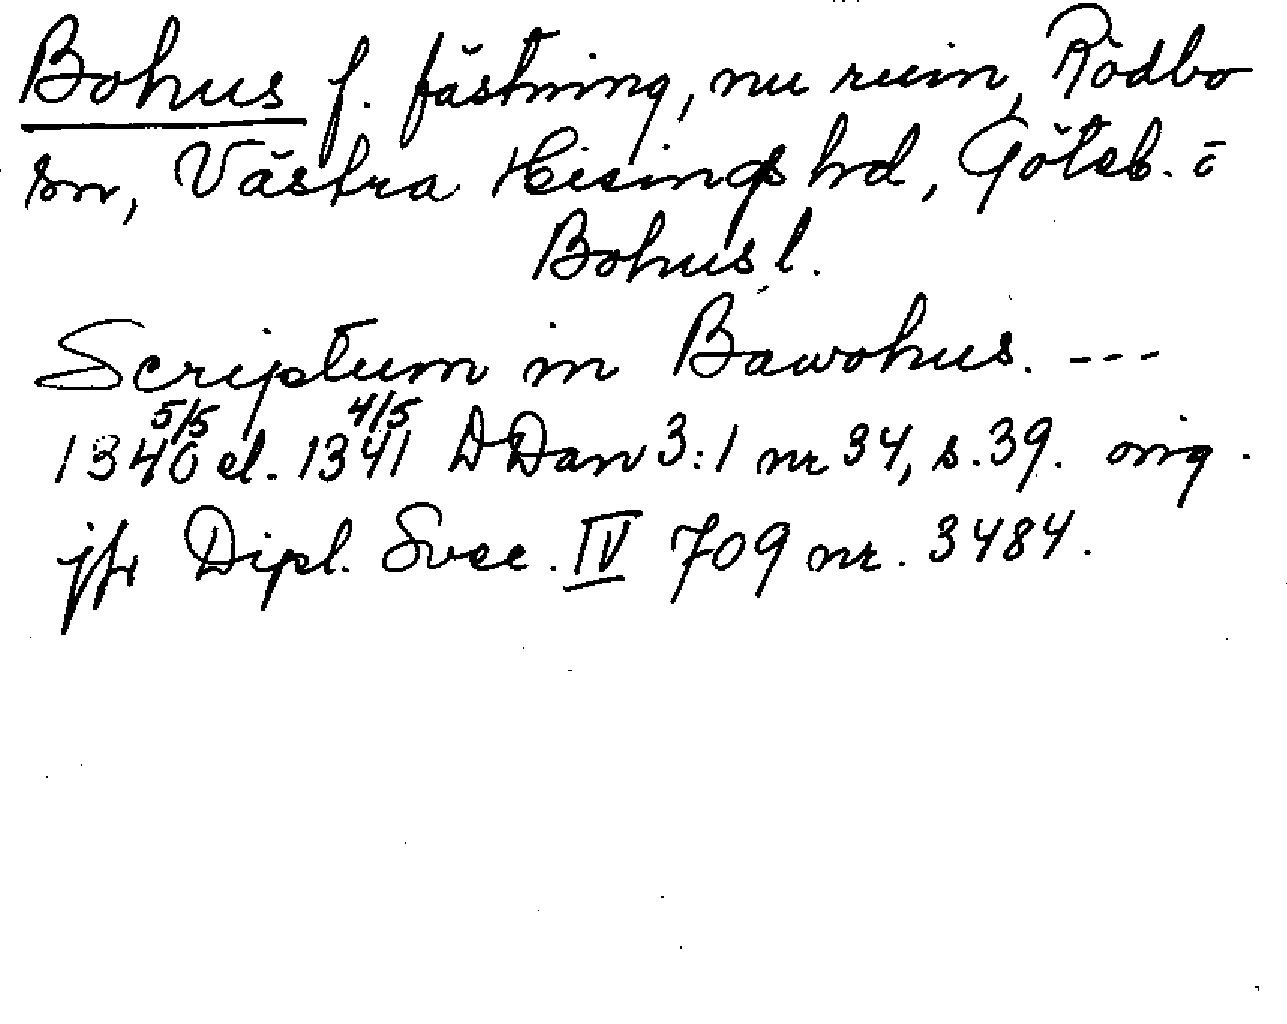 Bohus f. fästning, nu ruin, Rödbo
sn, Västra Hisings hd, Göteb. o
Bohus l.
Scriptum in Bawohus. ---
1340 5/5 el. 1341 4/5 DDan 3:1 nr 34, s. 39. orig.
jfr Dipl. Svec. IV 709 nr. 3484.